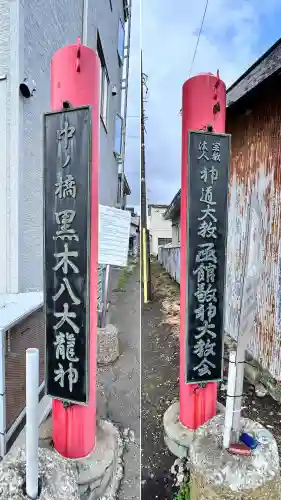 中ノ橋黒木八大龍神
宗教
法人
神道大教函館敬神大教会